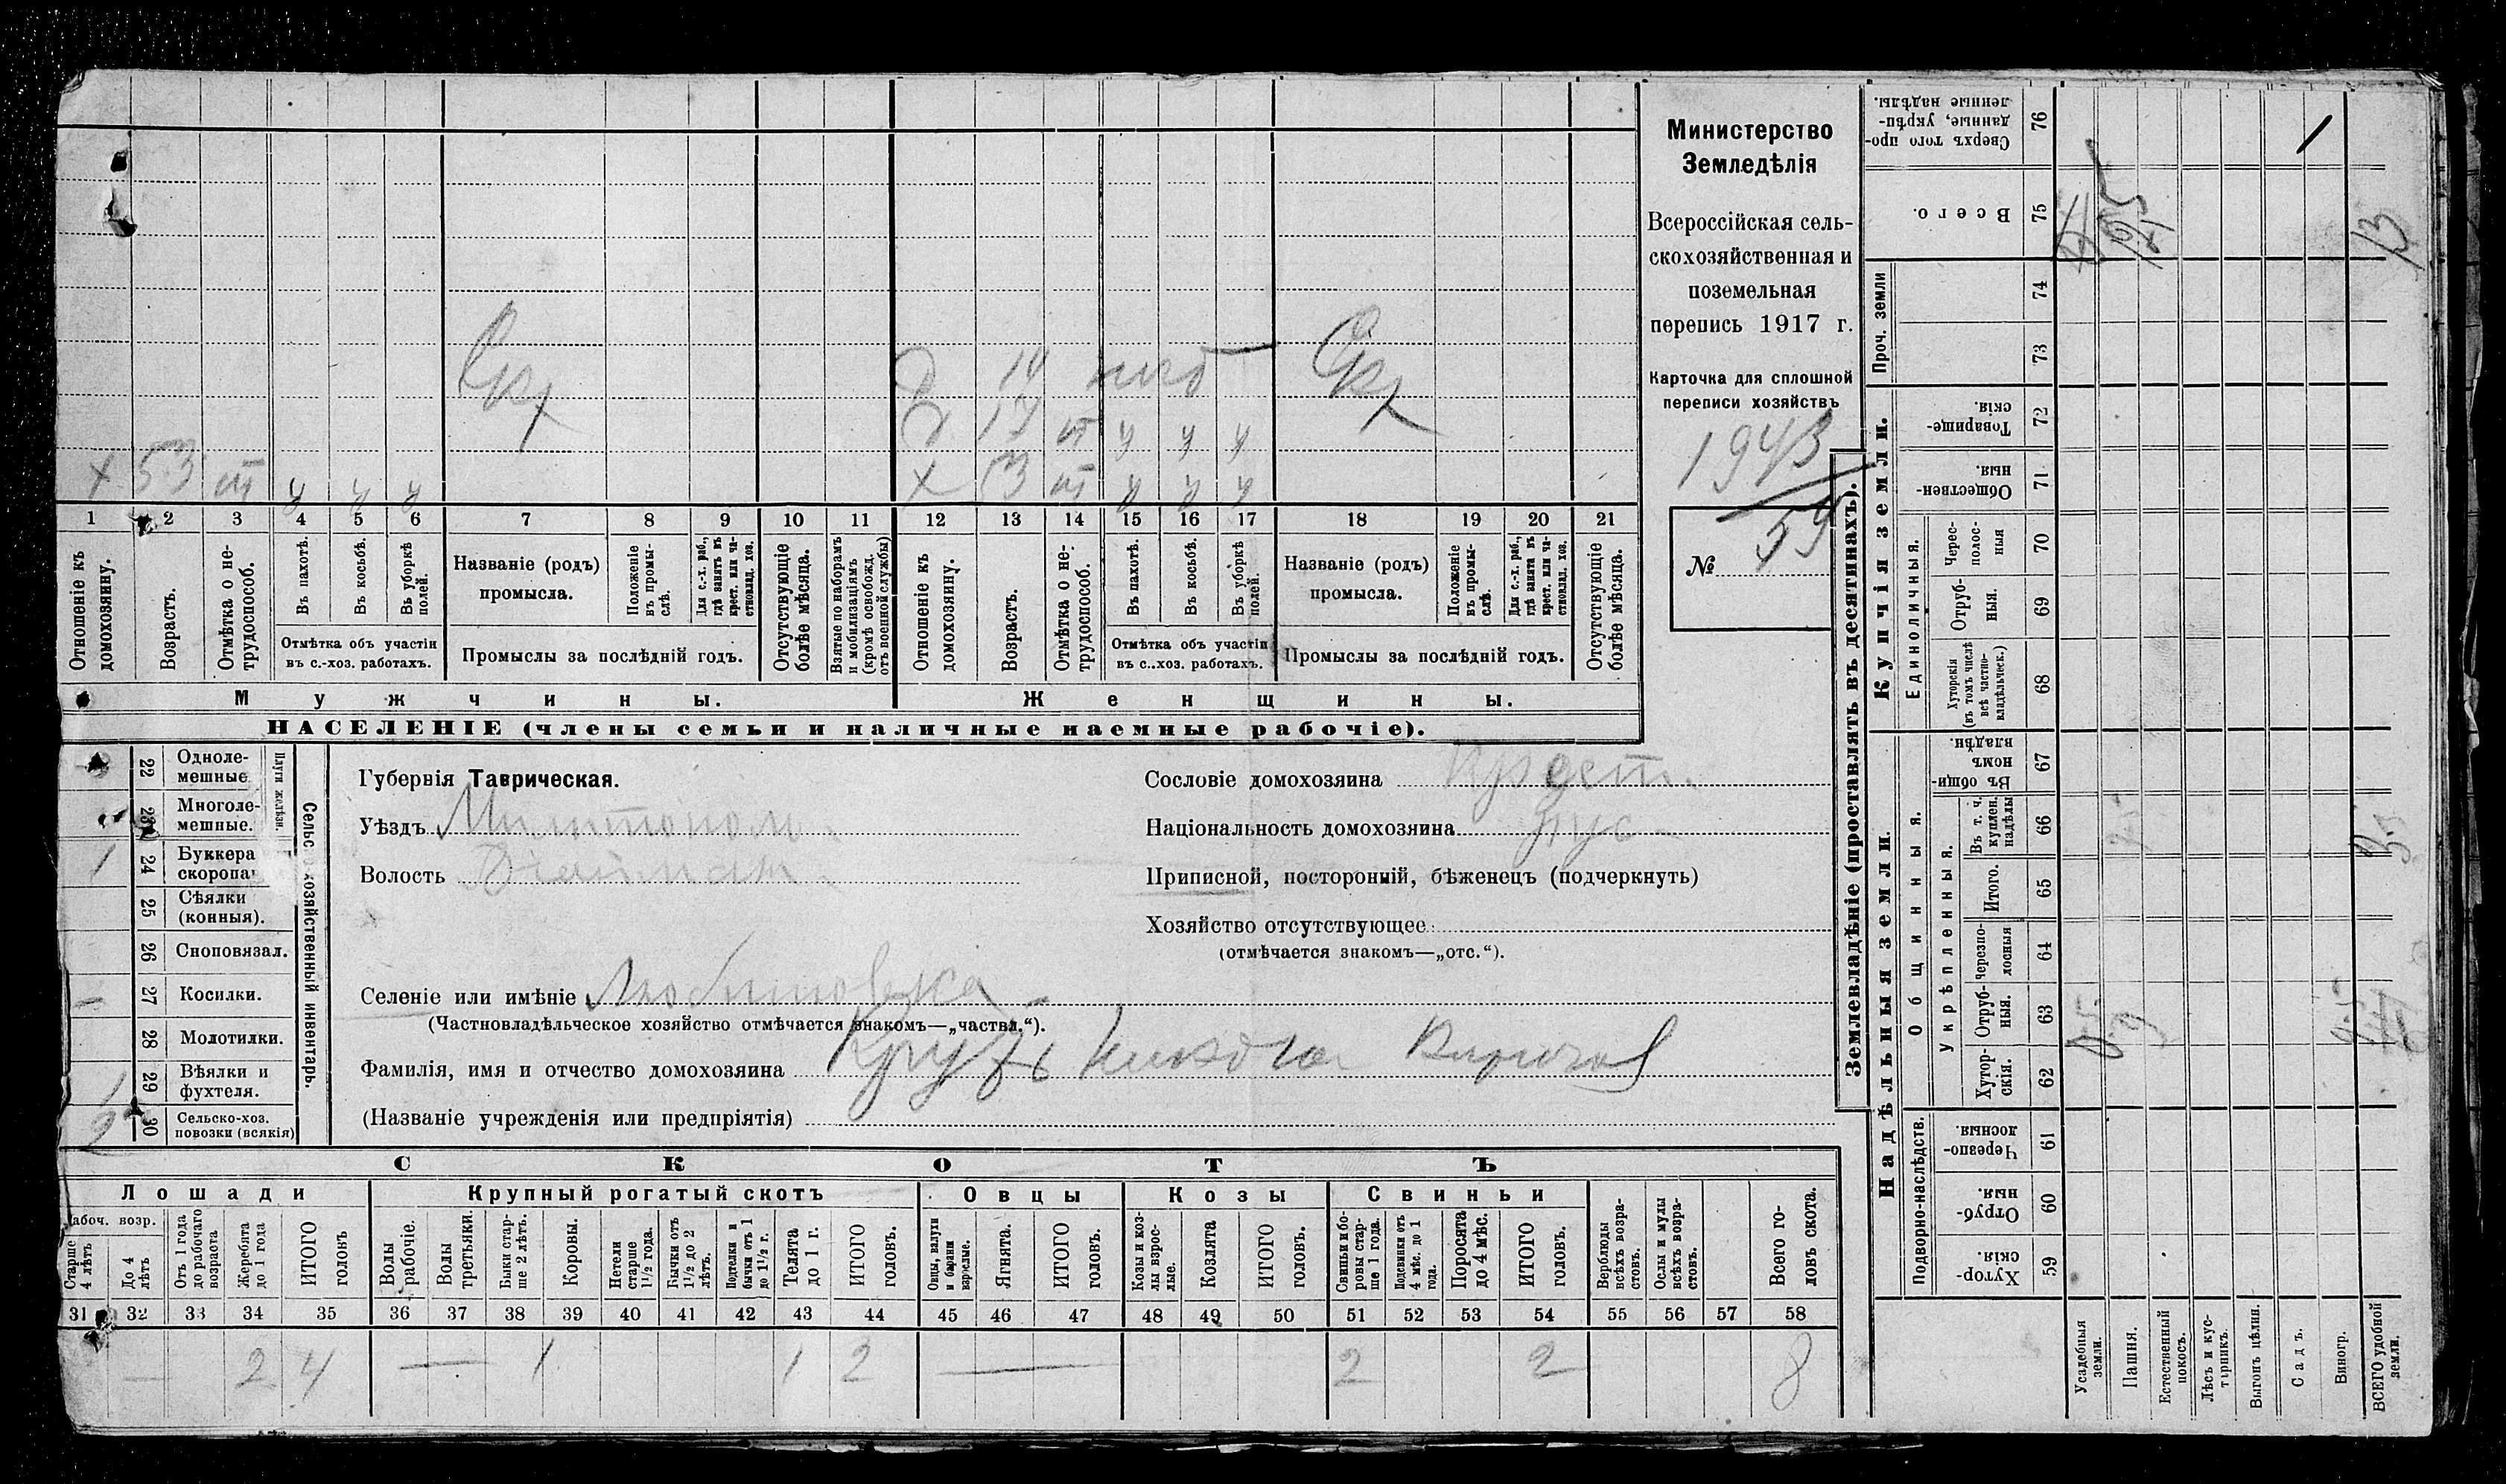 Министерство
Земледѣлія
Всероссійская сель-
скохозяйственная и
поземельная
перепись 1917 г.
Карточка для сплошной
переписи хозяйствъ
1943
№ 59
х 53 т у у у
Скх
д 14 пгб
д 17 т у у у
х 53 т у у у
Скх
1 2 3 4 5 6 7 8 9 10 11 12 13 14 15 16 17 18 19 20 21
Отношеніе къ домохозяину.
Возрастъ.
Отмѣтка о не-трудоспособ.
Въ пахотѣ.
Въ косьбѣ.
Въ уборкѣ полей.
Отмѣтка объ участіи
въ с.-хоз. работахъ.
Названіе (родъ)
промысла.
Положеніе въ промы-слѣ.
Для с.-х. раб., гдѣ занятъ въ крест. или ча-стновлад. хоз.
Промыслы за послѣдній годъ.
Отсутствующіе болѣе мѣсяца.
Взятые по наборамъ и мобилизаціямъ (кромѣ освобожд. отъ военной службы)
Отношеніе къ домохозяину.
Возрастъ.
Отмѣтка о не-трудоспособ.
Въ пахотѣ.
Въ косьбѣ.
Въ уборкѣ полей.
Отмѣтка объ участіи
въ с..хоз. работахъ.
Названіе (родъ)
промысла.
Положеніе въ промы-слѣ.
Для с.-х. раб., гдѣ занята въ крест. или ча-стновлад. хоз.
Промыслы за послѣдній годъ.
Отсутствующіе болѣе мѣсяца.
Мужчины.
Женщины.
НАСЕЛЕНІЕ (члены семьи и наличные наемные рабочіе).
Сельско-хозяйственный инвентарь.
Плуги желѣзн.
22 Однолемешные
23 Многоле-мешные.
1 24 Буккера скоропа
25 Сѣялки (конныя).
26 Сноповязал.
— 27 Косилки.
28 Молотилки.
1 29 Вѣялки и фухтеля.
2 30 Сельско-хоз. повозки (всякія)
Губернія Таврическая.
Уѣздъ Мелитополь.
Волость
Селеніе или имѣніе Любимовка
(Частновладѣльческое хозяйство отмѣчается знакомъ—„частвл.“).
Фамилія, имя и отчество домохозяина
(Названіе учрежденія или предпріятія)
Сословіе домохозяина Крест.
Національность домохозяина рус
Приписной, посторонній, бѣженецъ (подчеркнуть)
Хозяйство отсутствующее
(отмѣчается знакомъ—„отс.“).
СКОТЪ
Лошади
Крупный рогатый скотъ
Овцы
Козы
Свиньи
абоч. возр.
Старше 4 лѣтъ
До 4 лѣтъ
Отъ 1 года до рабочаго возраста
Жеребята до 1 года
ИТОГО головъ
Волы рабочіе.
Волы третьяки.
Быки стар-ше 2 лѣтъ.
Коровы.
Нетели старше 1½ года.
Бычки отъ 1½ до 2 лѣтъ.
Подтелки и бычки отъ 1 до 1½ г.
Телята до 1 г.
ИТОГО головъ.
Овцы, валухи и бараны взрослые.
Ягнята.
ИТОГО головъ.
Козы и коз-лы взрос-лые.
Козлята
ИТОГО головъ.
Свиньи и бо-ровы стар-ше 1 года.
Подсвинки отъ 4 мѣс. до 1 года.
Поросята до 4 мѣс.
ИТОГО головъ.
Верблюды всѣхъ возра-стовъ.
Ослы и мулы всѣхъ возра-стовъ.
Всего го-ловъ скота.
31 32 33 34 35 36 37 38 39 40 41 42 43 44 45 46 47 48 49 50 51 52 53 54 55 56 57 58
— 2 4 — 1 1 2 — 2 2 8
Землевладѣніе (проставлять въ десятинахъ).
Надѣльныя земли.
Купчія земли.
Подворно-наслѣдств.
Общинныя.
Укрѣпленныя.
Единоличныя.
Проч. земли
Хутор-скія. 59
Отруб-ныя. 60
Черезпо-лосныя 61
Хутор-скія. 62
Отруб-ныя. 63
Черезпо-лосныя 64
Итого. 65
Въ т. ч. куплен. надѣлы 66
Въ общи-номъ владѣн. 67
Хуторскія (въ томъ числѣ всѣ частно-владѣльческ.) 68
Отруб-ныя. 69
Черес-полос-ныя 70
Обществен-ныя. 71
Товарище-скія. 72
73
74
Всего. 75
Сверхъ того про-данные, укрѣп-ленные надѣлы. 76
Усадебныя земли.
Пашня.
Естественный покосъ.
Лѣсъ и кус-тарникъ.
Выгонъ цѣлин.
Садъ.
Виногр.
ВСЕГО удобной земли.
13